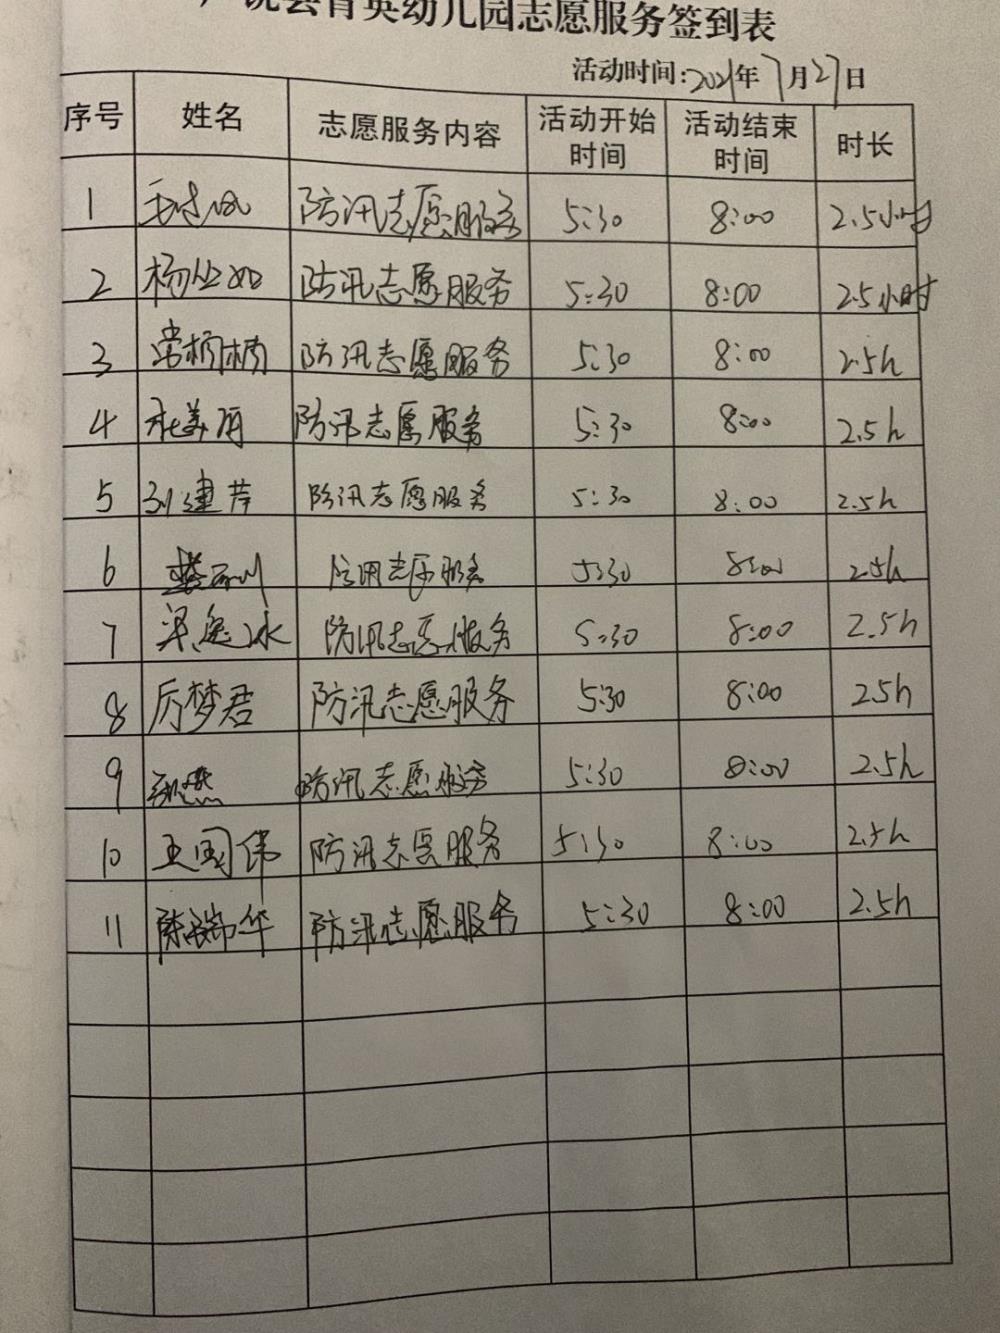 县育英幼儿园志愿服务签到表
活动时间:2021年7月27日
序号 姓名 志愿服务内容 活动开始时间 活动结束时间 时长
1 防汛志愿服务 5:30 8:00 2.5小时
2 防汛志愿服务 5:30 8:00 2.5小时
3 常楠楠 防汛志愿服务 5:30 8:00 2.5h
4 杜美丽 防汛志愿服务 5:30 8:00 2.5h
5 刘建芹 防汛志愿服务 5:30 8:00 2.5h
6 防汛志愿服务 5:30 8:00 2.5h
7 冰 防汛志愿服务 5:30 8:00 2.5h
8 厉梦君 防汛志愿服务 5:30 8:00 2.5h
9 防汛志愿服务 5:30 8:00 2.5h
10 王国伟 防汛志愿服务 5:30 8:00 2.5h
11 陈瑞华 防汛志愿服务 5:30 8:00 2.5h